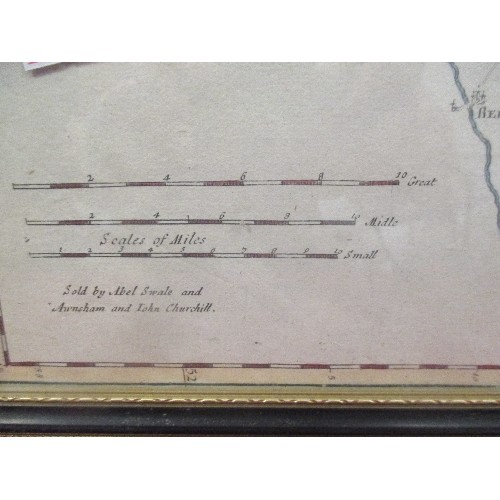 BER
2 4 6 8 10 Great
2 4 6 8 10 Midle
Scales of Miles
1 2 3 4 5 6 7 8 9 10 Small
Sold by Abel Swale and
Awnsham and Iohn Churchill.
52 5